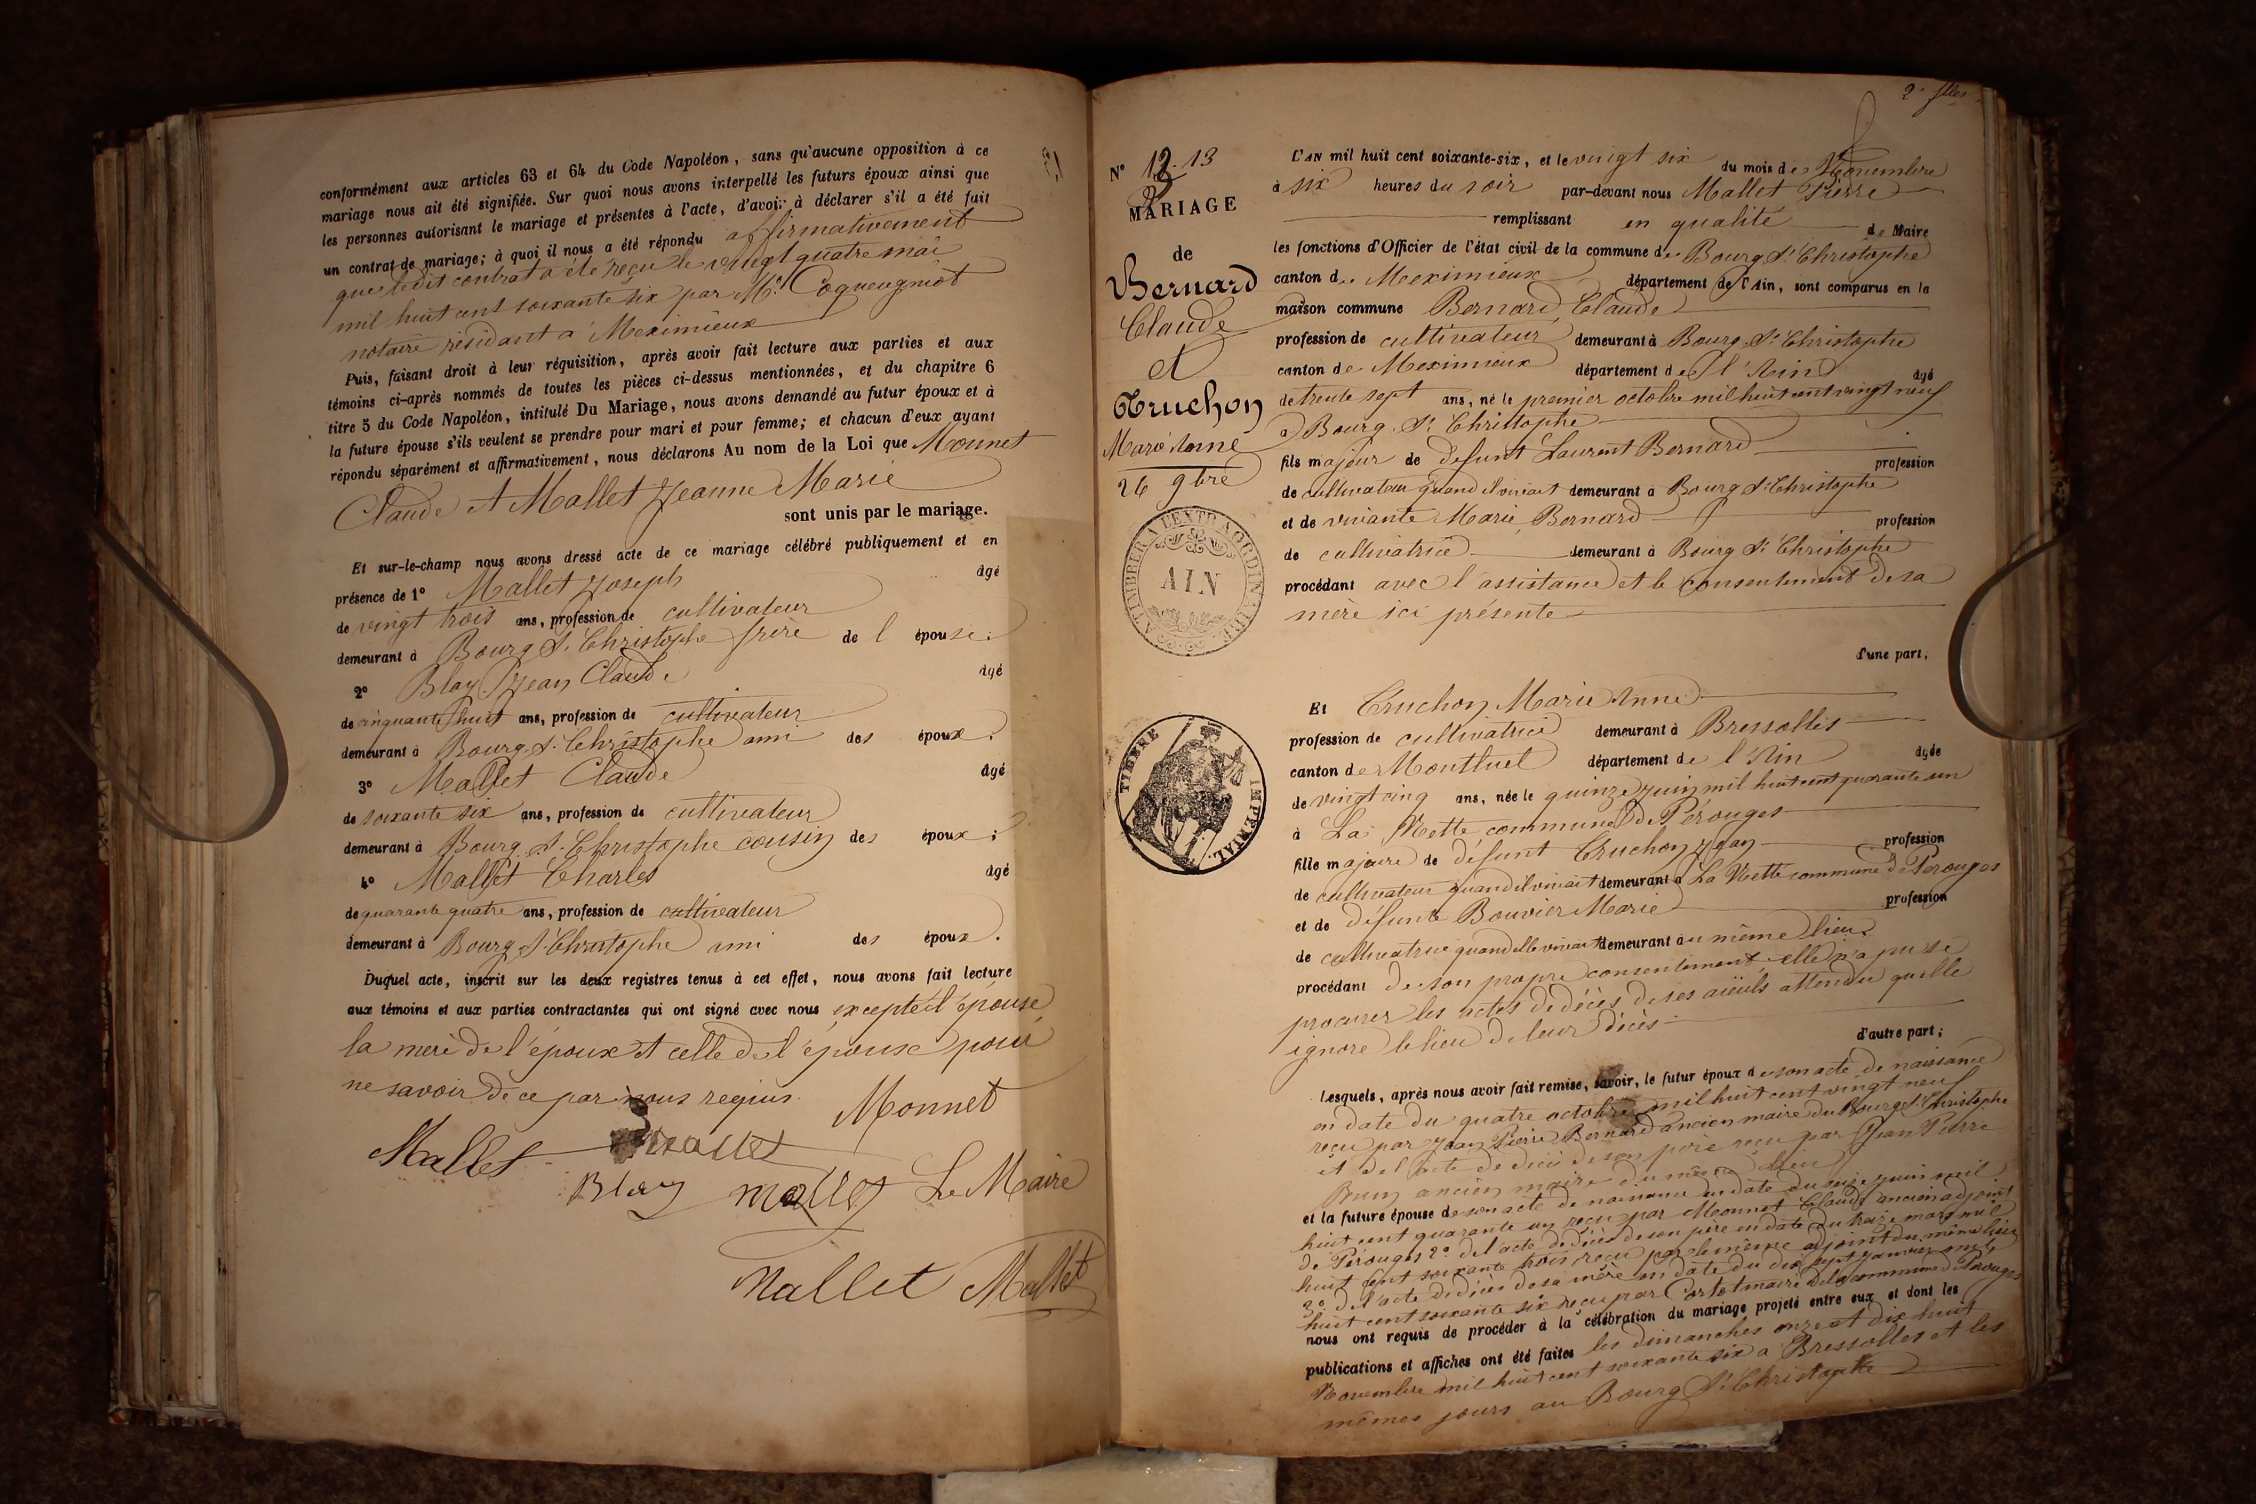 conformément aux articles 63 et 64 du Code Napoléon, sans qu'aucune opposition à ce
mariage nous ait été signifiée. Sur quoi nous avons interpellé les futurs époux ainsi que
les personnes autorisant le mariage et présentes à l'acte, d'avoir à déclarer s'il a été fait
un contrat de mariage; à quoi il nous a été répondu affirmativement
que ledit contrat a été reçu le vingt quatre mai
mil huit cent soixante six par Me. Coqueugniot
notaire résidant à Meximieux
Puis, faisant droit à leur réquisition, après avoir fait lecture aux parties et aux
témoins ci-après nommés de toutes les pièces ci-dessus mentionnées, et du chapitre 6
titre 5 du Code Napoléon, intitulé Du Mariage, nous avons demandé au futur époux et à
la future épouse s'ils veulent se prendre pour mari et pour femme; et chacun d'eux ayant
répondu séparément et affirmativement, nous déclarons Au nom de la Loi que Monnet
Claude et Mallet Jeanne Marie
sont unis par le mariage.
Et sur-le-champ nous avons dressé acte de ce mariage célébré publiquement et en
présence de 1° Mallet Joseph âgé
de vingt trois ans, profession de cultivateur
demeurant à Bourg St. Christophe frère de l épouse.
2° Blay Jean Claude âgé
de cinquante huit ans, profession de cultivateur
demeurant à Bourg St. Christophe ami des époux.
3° Mallet Claude âgé
de soixante six ans, profession de cultivateur
demeurant à Bourg St. Christophe cousin des époux;
4° Mallet Charles âgé
de quarante quatre ans, profession de cultivateur
demeurant à Bourg St Christophe ami des époux.
Duquel acte, inscrit sur les deux registres tenus à cet effet, nous avons fait lecture
aux témoins et aux parties contractantes qui ont signé avec nous excepté l'épouse
la mère de l'époux et celle de l'épouse pour
ne savoir de ce par nous requis.
Monnet
Mallet Mallet
Blay Mallet Le Maire
Mallet Mallet
N° 13
MARIAGE
de
Bernard
Claude
et
Truchon
Marie Anne
26 9bre
A TIMBRER A L'EXTRAORDINAIRE
AIN
TIMBRE IMPERIAL.
L'AN mil huit cent soixante-six, et le vingt six du mois de Novembre
à six heures du soir par-devant nous Mallet Pierre
remplissant en qualité de Maire
les fonctions d'Officier de l'état civil de la commune de Bourg St Christophe
canton de Meximieux département de l'Ain, sont comparus en la
maison commune Bernard Claude
profession de cultivateur demeurant à Bourg St Christophe
canton de Meximieux département de l'Ain âgé
de trente sept ans, né le premier octobre mil huit cent vingt neuf
à Bourg St Christophe
fils majeur de defunt Laurent Bernard profession
de cultivateur quand il vivait demeurant à Bourg St Christophe
et de vivante Marie Bernard profession
de cultivatrice demeurant à Bourg St Christophe
procédant avec l'assistance et le consentement de sa
mère ici présente
d'une part,
Et Truchon Marie Anne
profession de cultivatrice demeurant à Bressolles
canton de Montluel département de l'Ain âgée
de vingt cinq ans, née le quinze juin mil huit cent quarante un
à La Vlette commune de Pérouges
fille majeure de défunt Truchon Jean profession
de cultivateur quand il vivait demeurant à La Vlette commune de Perouges
et de defunte Bouvier Marie profession
de cultivatrice quand elle vivait demeurant au même lieu
procédant de son propre consentement elle n'a pu se
procurer les actes de décès de ses aïeuls attendu quelle
ignore le lieu de leur décès
d'autre part;
Lesquels, après nous avoir fait remise, savoir, le futur époux de son acte de naissance
en date du quatre octobre mil huit cent vingt neuf
reçu par Jean Pierre Bernard ancien maire du Bourg St Christophe
et de l'acte de décès de son père reçu par Jean Pierre
Brun ancien maire du même lieu
et la future épouse de son acte de naissance en date du seize juin mil
huit cent quarante un reçu par Monnet Claude ancien adjoint
de Pérouges 2° de l'acte de décès de son père en date du treize mars mil
huit cent soixante trois reçu par le même adjoint du même lieu
3° de l'acte de décès de sa mère en date du dix sept janvier mil
huit cent soixante six reçu par Cortet maire de la commune de Pérouges
nous ont requis de procéder à la célébration du mariage projeté entre eux et dont les
publications et affiches ont été faites les dimanches onze et dix huit
Novembre mil huit cent soixante six à Bressolles et les
mêmes jours au Bourg St Christophe